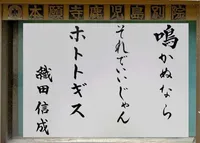 本願寺鹿児島別院
鳴かぬなら
それでいいじゃん
ホトトギス
織田信成